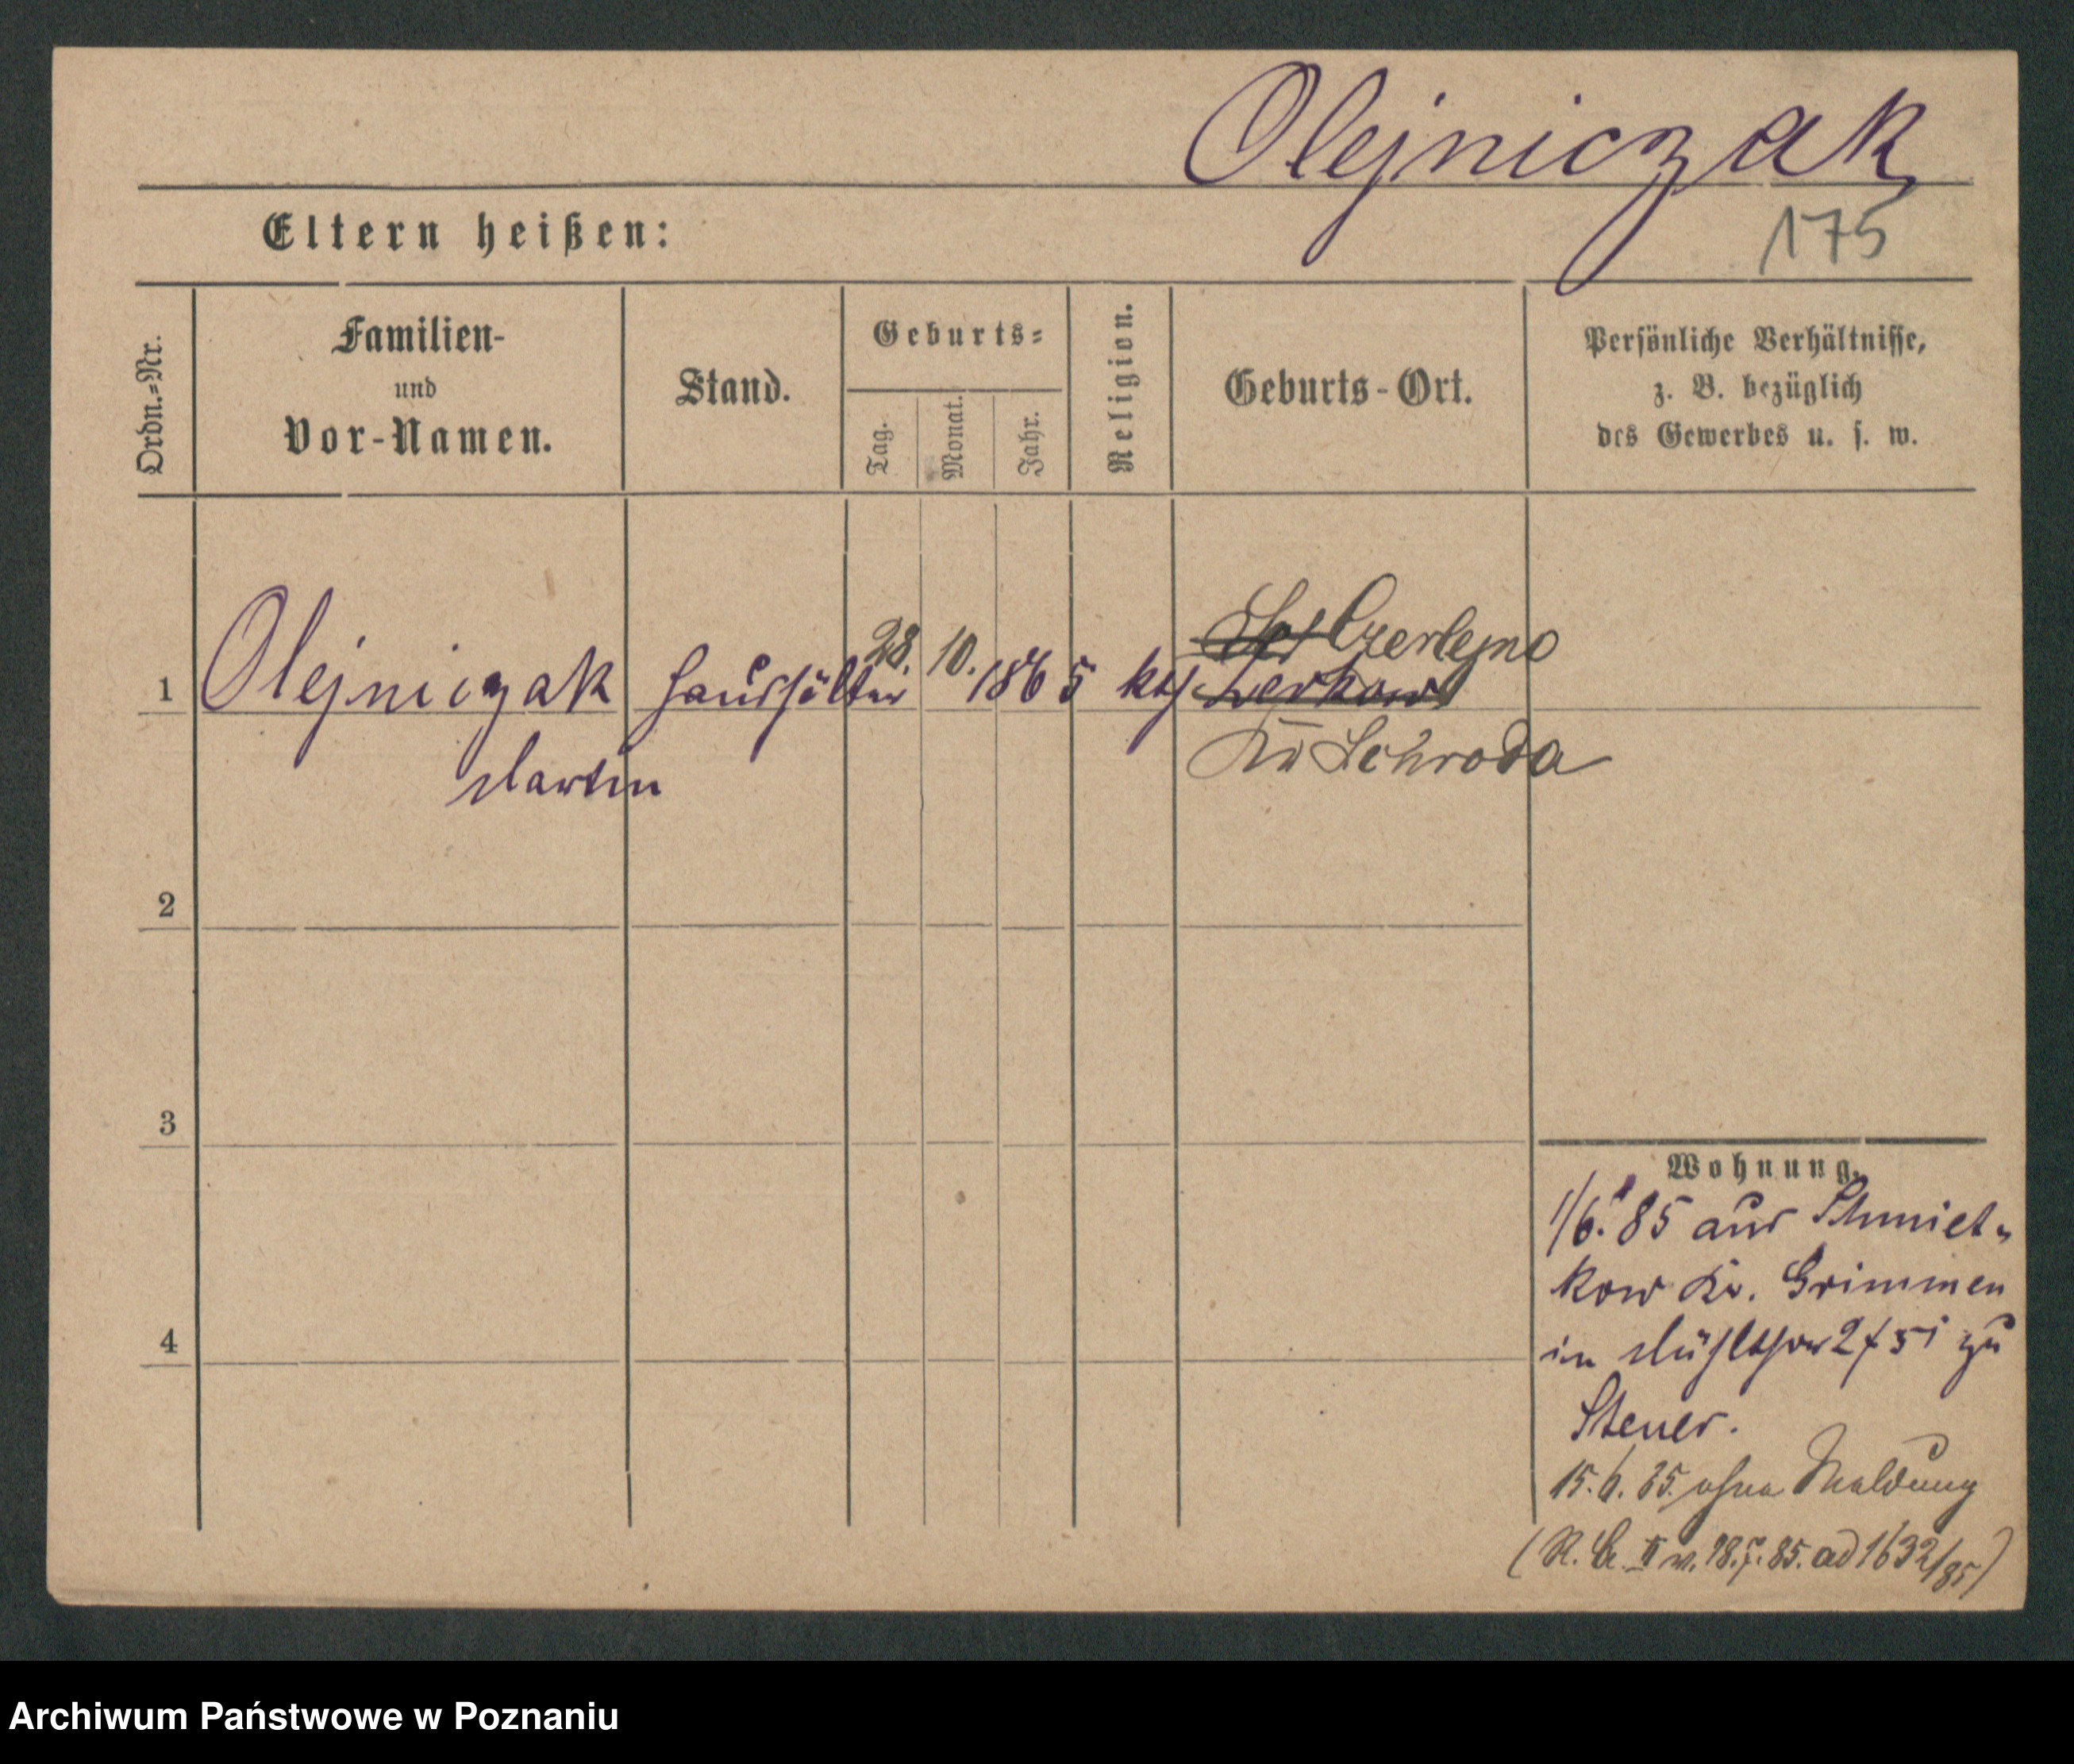 Olejniczak
175
Eltern heißen:
Ordn.=Nr.
Familien-
und
Vor-Namen.
Stand.
Geburts=
Tag.
Monat.
Jahr.
Religion.
Geburts-Ort.
Persönliche Verhältnisse,
z. B. bezüglich
des Gewerbes u. s. w.
Czerlejno
1 Olejniczak Haushälter 28. 10. 1865 kth Zerkow
Martin
Kr Schroda
2
3
4
Wohnung.
1/6. 85 aus Schmiet-
kow Kr. Grimmen
in Mühlthor
zu
Steuer.
15.6.85. ohne Meldung
(R. II v. 18.7.85. ad 1632/85)
Archiwum Państwowe w Poznaniu